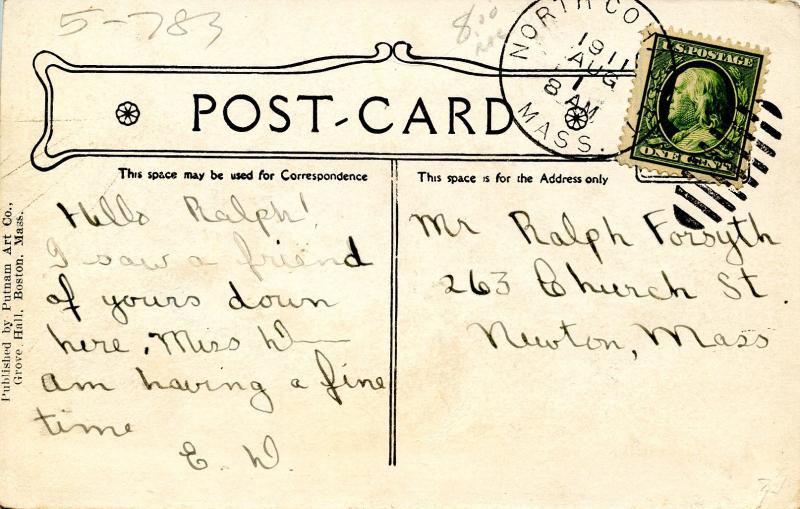 5-783
8.00
NORTH CO
1911
AUG
1
8 AM
MASS.
U.S. POSTAGE
ONE CENT
POST-CARD
This space may be used for Correspondence
This space is for the Address only
Published by Putnam Art Co.,
Grove Hall, Boston, Mass.
Hello Ralph!
I saw a friend
of yours down
here. Miss W——
am having a fine
time
E. W.
Mr Ralph Forsyth
263 Church St.
Newton, Mass